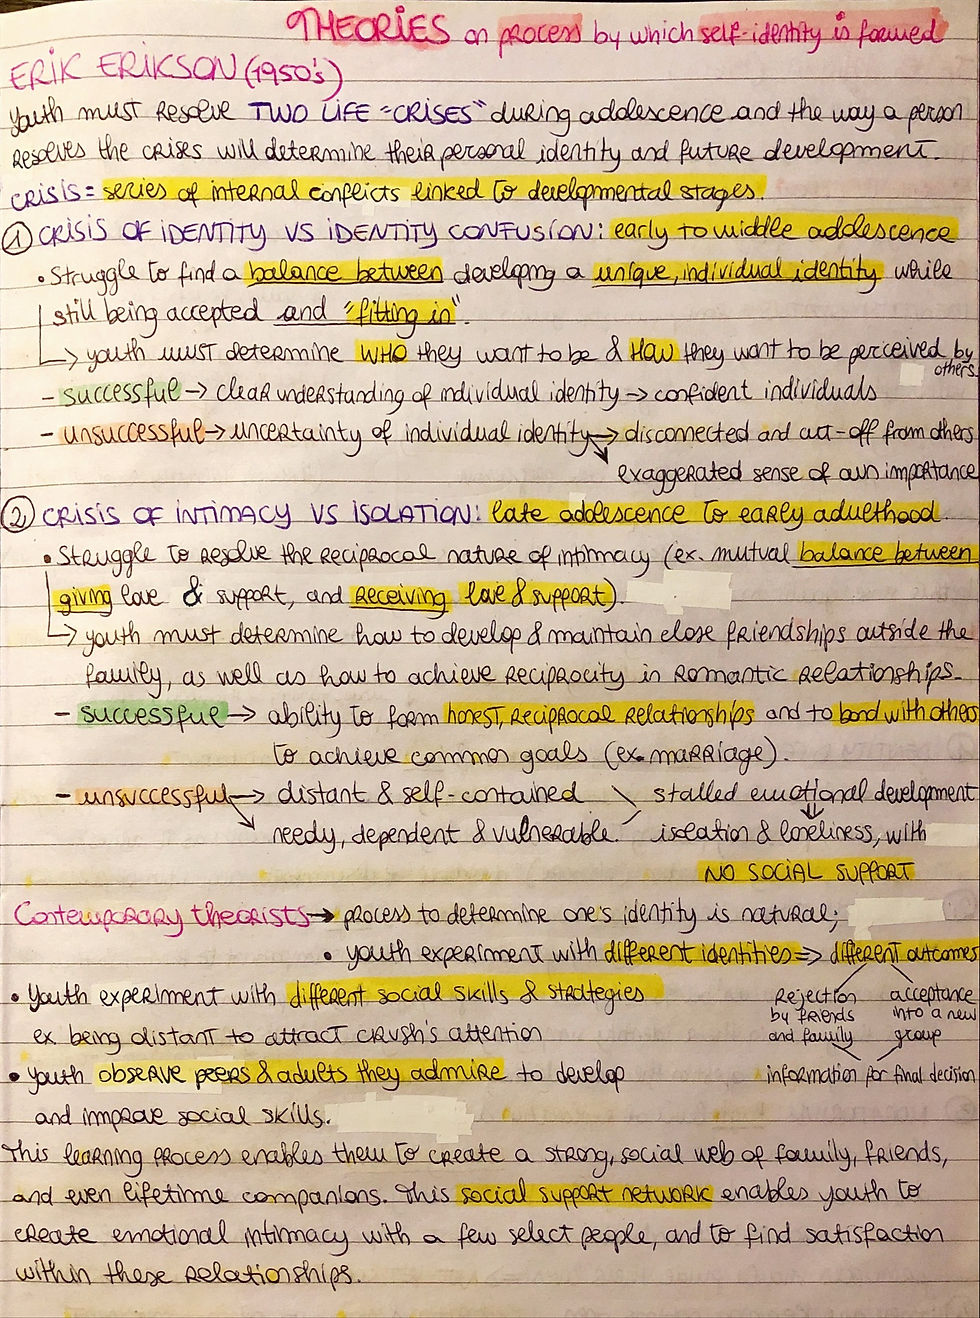 THEORIES on process by which self-identity is formed
ERIK ERIKSON (1950's)
Youth must resolve TWO LIFE "CRISES" during adolescence and the way a person
resolves the crises will determine their personal identity and future development.
CRISIS = series of internal conflicts linked to developmental stages.
① CRISIS OF IDENTITY VS IDENTITY CONFUSION: early to middle adolescence
• Struggle to find a balance between developing a unique, individual identity while
still being accepted and "fitting in".
↳ youth must determine WHO they want to be & HOW they want to be perceived by
others.
- successful → clear understanding of individual identity → confident individuals
- unsuccessful → uncertainty of individual identity → disconnected and cut-off from others
↘ exaggerated sense of own importance
② CRISIS OF INTIMACY VS ISOLATION: late adolescence to early adulthood
• Struggle to resolve the reciprocal nature of intimacy (ex. mutual balance between
giving love & support, and receiving love & support).
↳ youth must determine how to develop & maintain close friendships outside the
family, as well as how to achieve reciprocity in romantic relationships.
- successful → ability to form honest, reciprocal relationships and to bond with others
to achieve common goals (ex. marriage).
- unsuccessful → distant & self-contained \ stalled emotional development
↘ needy, dependent & vulnerable. / isolation & loneliness, with
NO SOCIAL SUPPORT
Contemporary theorists → process to determine one's identity is natural;
• youth experiment with different identities => different outcomes
• Youth experiment with different social skills & strategies
ex. being distant to attract crush's attention
Rejection acceptance
by friends into a new
and family group
information for final decision
• Youth observe peers & adults they admire to develop
and improve social skills.
This learning process enables them to create a strong, social web of family, friends,
and even lifetime companions. This social support network enables youth to
create emotional intimacy with a few select people, and to find satisfaction
within these relationships.